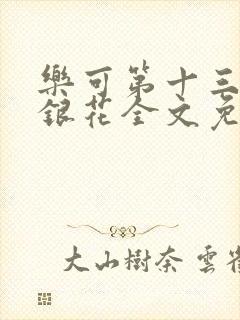 樂可第十三
銀花全文免
大山樹奈 雲雀